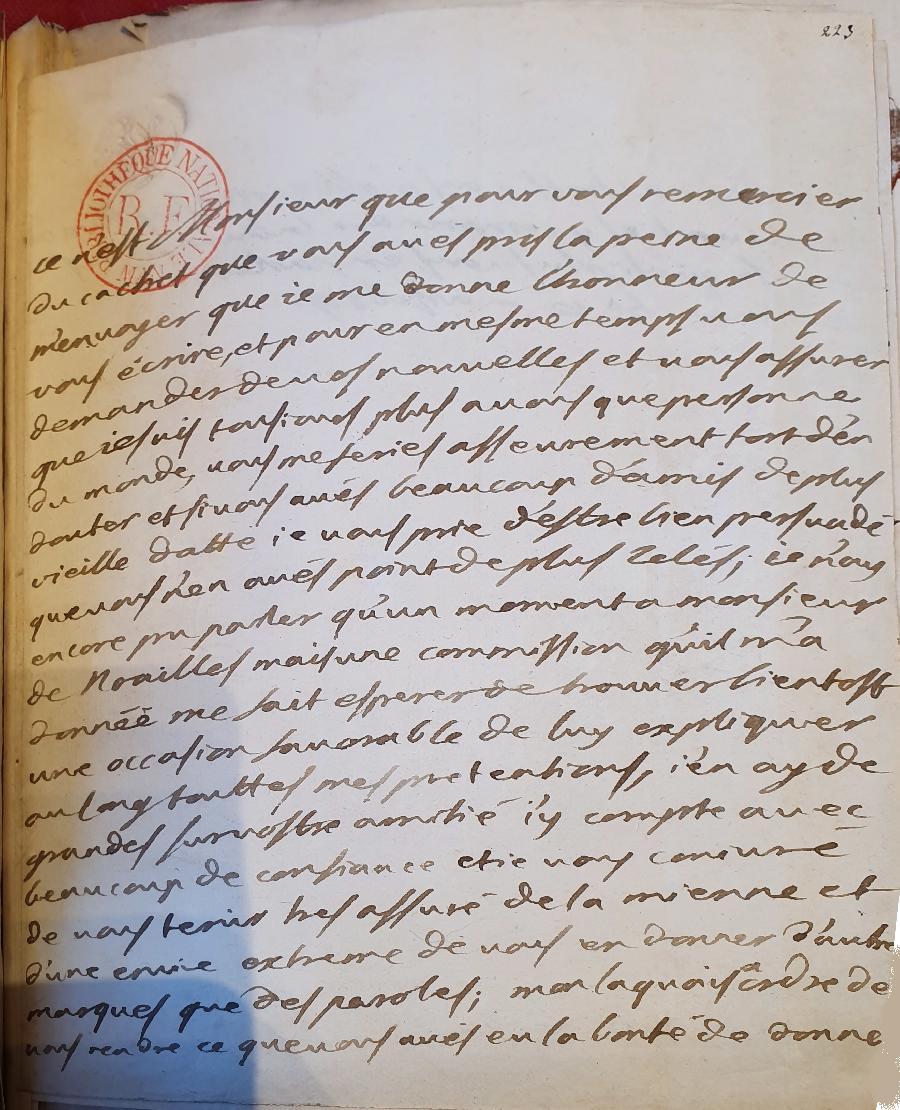 223
BIBLIOTHEQUE NATIONALE MAN
R.F
ce n'est Monsieur que pour vous remercier
du cachet que vous aués pris la peine de
m'enuoyer que ie me donne l'honneur de
vous écrire, et pour en mesme temps uous
demander de uos nouuelles et uous assurer
que ie suis tousiours plus a uous que personne
du monde, uous me feriés asseurement tort d'en
douter et si uous aués beaucoup d'amis de plus
vieille datte ie uous prie d'estre bien persuadé
que uous n'en aués point de plus zelés; ie n'ay
encore pu parler qu'un moment a monsieur
de Noailles mais une commission qu'il m'a
donnéé me fait esperer de trouuer bientost
une occasion fauorable de luy expliquer
au long touttes mes pretentions, i'en ay de
grandes sur uostre amitié i'y compte auec
beaucoup de confiance et ie uous coniure
de uous tenir tres assuré de la mienne et
d'une enuie extreme de uous en donner d'autre
marques que des paroles; mon laquais a ordre de
uous rendre ce que uous aués eu la bonté de donne